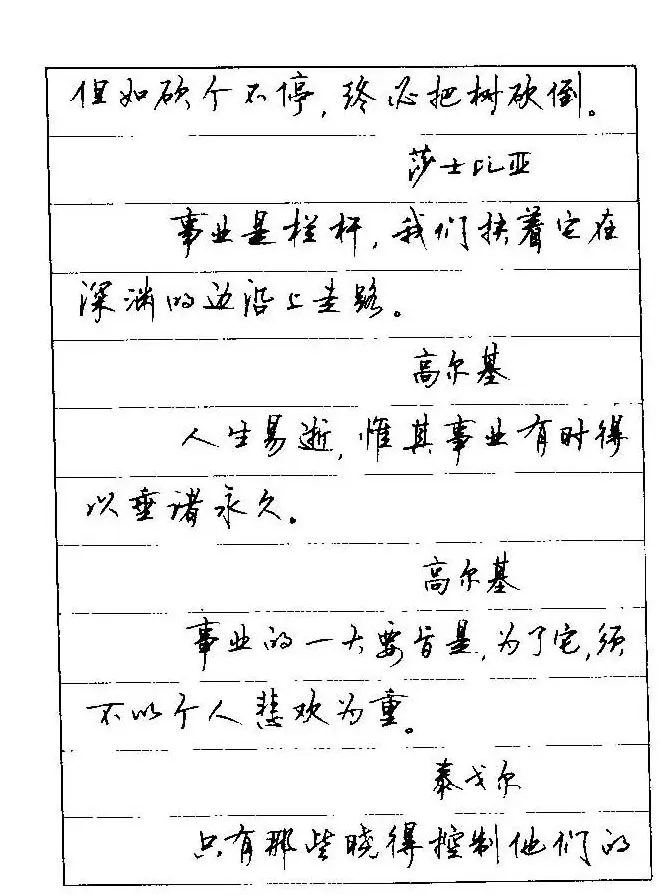 但如砍个不停,终必把树砍倒。
莎士比亚
事业是栏杆,我们扶着它在
深渊的边沿上走路。
高尔基
人生易逝,惟其事业有时得
以垂诸永久。
高尔基
事业的一大要旨是,为了它,须
不以个人悲欢为重。
泰戈尔
只有那些晓得控制他们的